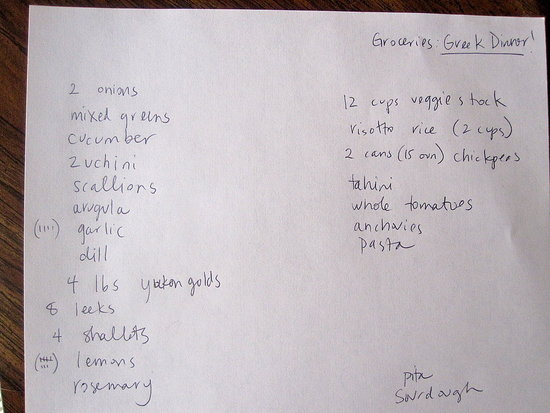 Groceries: Greek Dinner!
2 onions
mixed greens
cucumber
zuchini
scallions
arugula
(IIII) garlic
dill
4 lbs yukon golds
8 leeks
4 shallots
lemons
rosemary
12 cups veggie stock
risotto rice (2 cups)
2 cans (15 oun) chickpeas
tahini
whole tomatoes
anchovies
pasta
pita
Sourdough